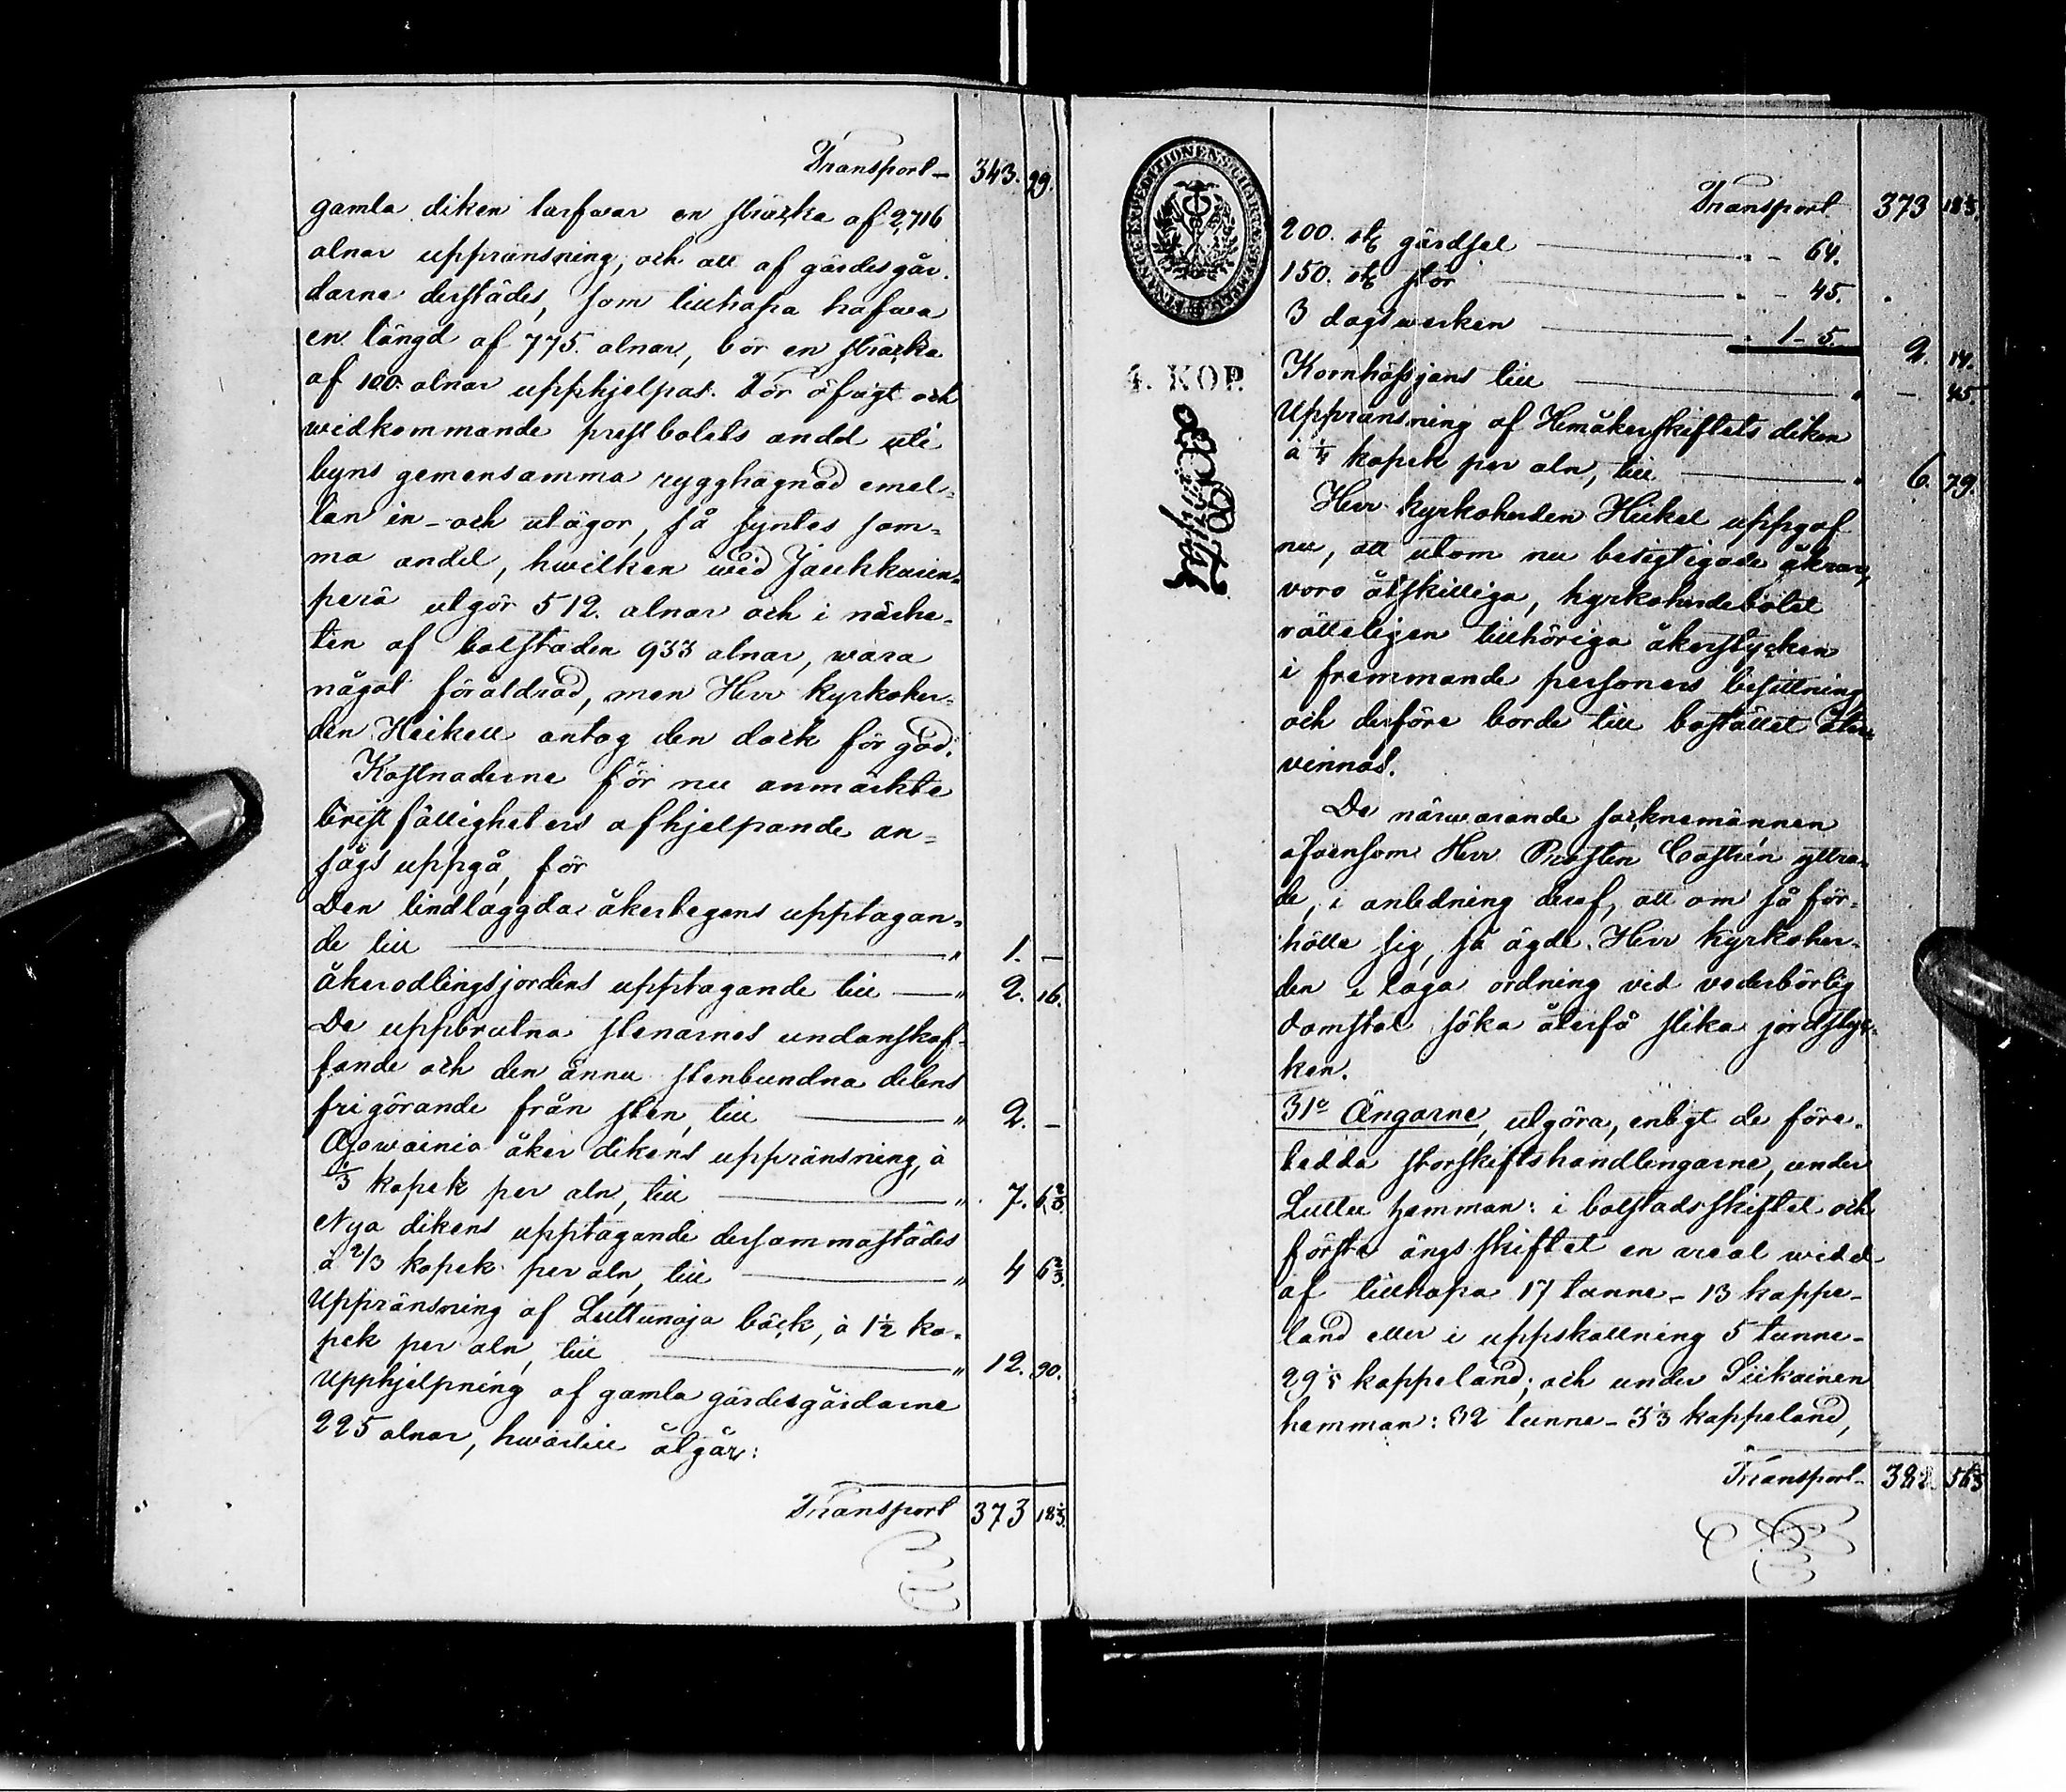 Transport— 343. 29.
gamla diken tarfwar en sträcka af 2,716
alnar uppränsning, och att af gärdesgår-
darne derstädes, som tillhopa hafwa
en längd af 775. alnar, bör en sträcka
af 100. alnar upphjelpas. För öfrigt och
widkommande prestbolets andel uti
byns gemensamma rygghägnad emel-
lan in- och utägor, så syntes sam-
ma andel, hwilken wid
perä utgör 512. alnar och i närhe-
ten af bolstaden 933 alnar, wara
något föråldrad, men Herr Kyrkoher-
den Heikell antog den dock för god.
Kostnaderne för nu anmärkte
bristfälligheters afhjelpande an-
sågs uppgå, för
Den lindlaggda åkertegens upptagan-
de till — " 1. —
åkerodlingsjordens upptagande till — " 2. 16.
De uppbrutna stenarnes undanskaf-
fande och den ännu stenbundna delens
frigörande från sten, till — " 2. —
Ajowainio åker dikens uppränsning, à
1/3 kopek per aln, till — " 7. 6 2/3.
Nya dikens upptagande dersammastädes
à 2/3 kopek per aln, till — " 4 6 2/3.
Uppränsning af Luttunoja bäck, à 1 1/2 ko-
pek per aln, till — " 12. 90.
Upphjelpning af gamla gärdesgårdarne
225 alnar, hwartill åtgår:
Transport 373 18 1/3.
FINANCE EXPEDITIONENS CHARTÆ
4. KOP.
Transport 373 18 1/3.
200. st gärdsel — " - 64.
150. st stör — " - 45.
3 dagswerken — " 1 - 5. 2. 14.
Kornhässjans till — " — 45.
Uppränsning af Hemåkerskiftets diken
à 1/4 kopek per aln, till — " 6. 79.
Herr Kyrkoherden Heikel uppgaf
nu, att utom nu besigtigade åkrar,
voro åtskilliga, kyrkoherdebolet
rätteligen tillhöriga åkerstycken
i fremmande personers besittning
och derföre borde till bostället åter-
vinnas.
De närwarande socknemännen
äfvensom Herr Prosten Castrén yttra-
de, i anledning deraf, att om så för-
hölle sig, så ägde Herr Kyrkoher-
den i laga ordning vid vederbörlig
domstol söka återfå slika jordstyc-
ken.
31o Ängarne, utgöra, enligt de före-
tedda storskiftshandlingarne, under
Luttu hemman: i bolstadsskiftet och
första ängsskiftet en areal widd
af tillhopa 17 tunne- 13 kappe-
land eller i uppskattning 5 tunne-
29 1/5 kappeland; och under Siikainen
hemman: 32 tunne- 3 1/3 kappeland,
Transport— 382. 56 1/3